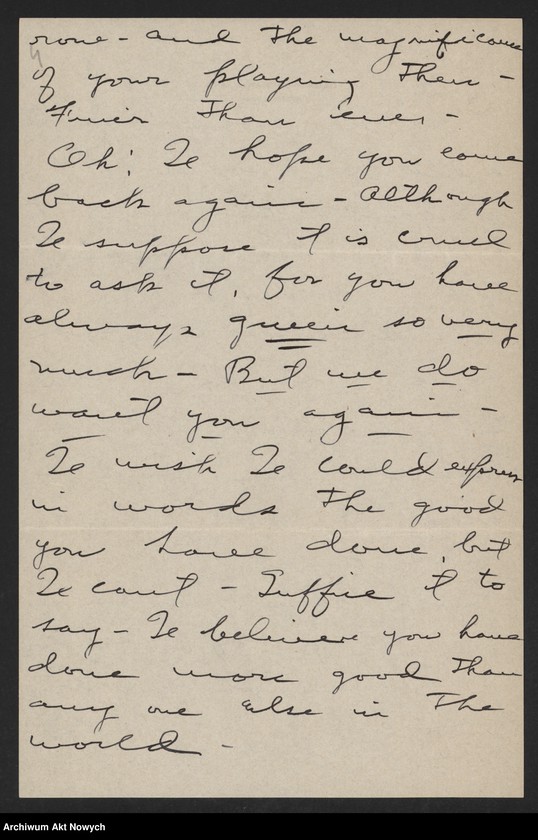 rone - and the magnificence
4
of your playing then -
finer than ever -
Oh! I hope you come
back again - Although
I suppose it is cruel
to ask it, for you have
always given so very
much - But we do
want you again -
I wish I could express
in words the good
you have done, but
I can't - Suffice it to
say - I believe you have
done more good than
any one else in the
world -
Archiwum Akt Nowych